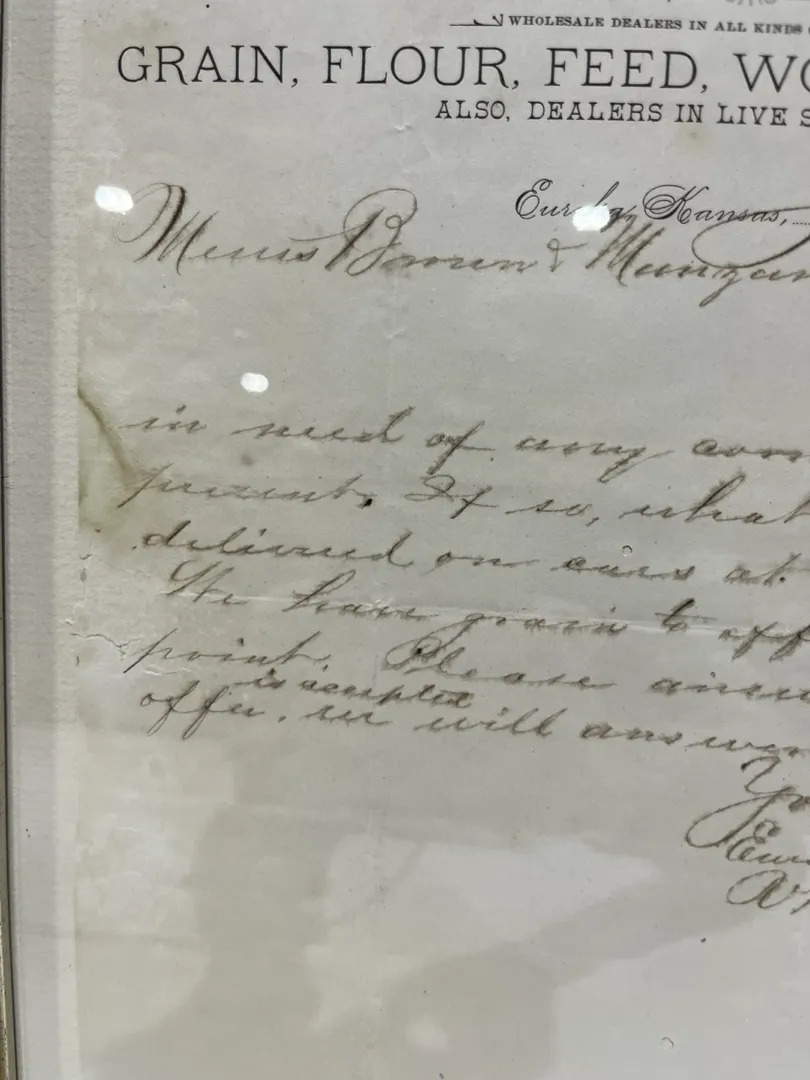 WHOLESALE DEALERS IN ALL KINDS
GRAIN, FLOUR, FEED, WO
ALSO, DEALERS IN LIVE S
Eureka, Kansas,
Messrs Brown & Mungar
in need of any corn
present. If so, what
delivered on cars at
We have grain to off
point. Please answ
is accepted
offer, we will answer
Yo
Eur